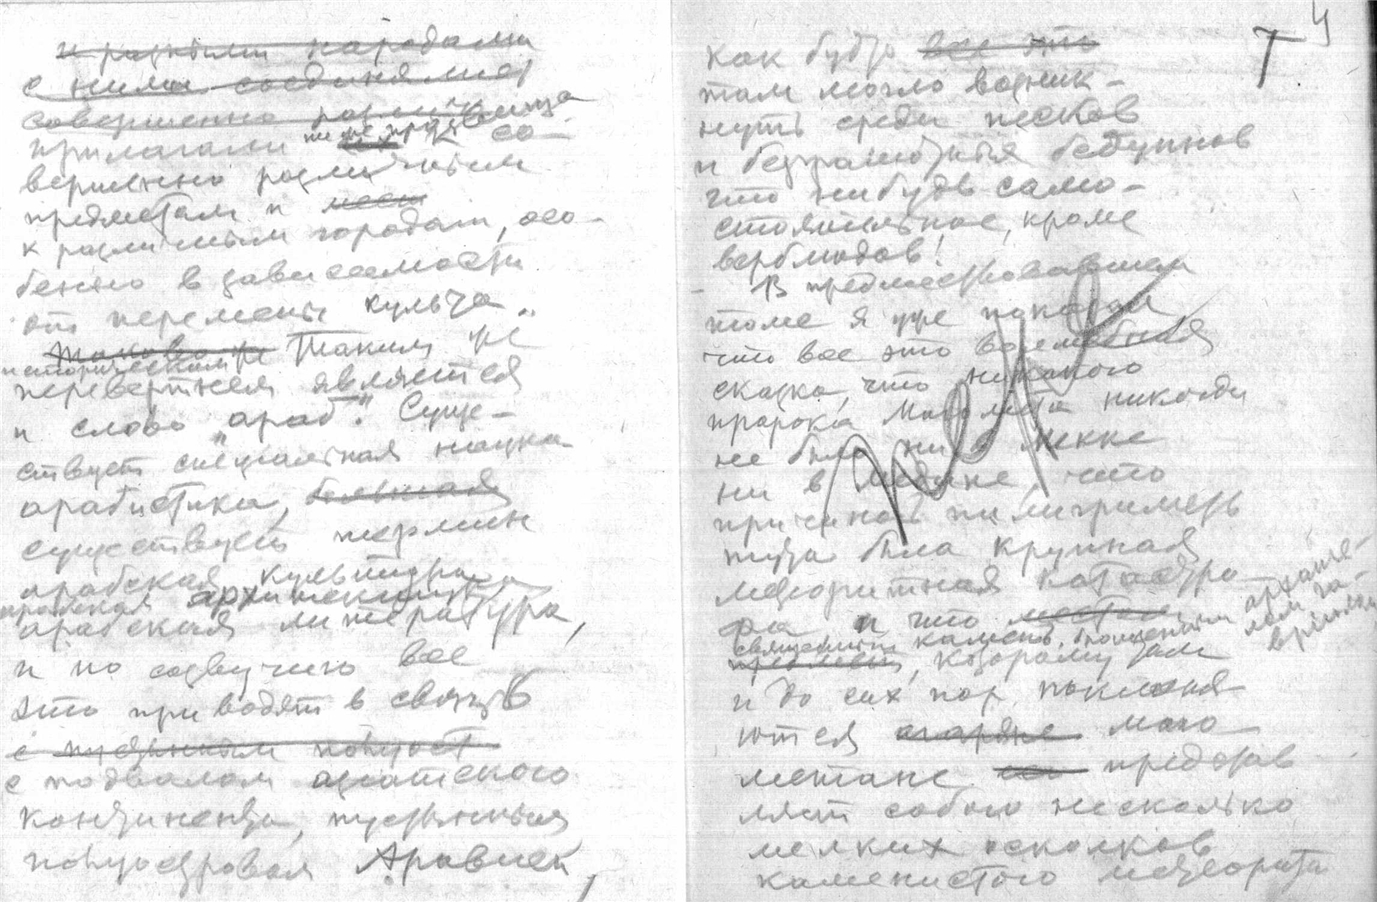 и разными народами
с ними соединялись
совершенно различные
прилагали те же прозвища со-
вершенно различным
предметам и мест
к различным городам, осо-
бенно в зависимости
от перемены культа.
Таково же Таким же
историческим
перевертнем является
и слово "араб". Суще-
ствует специальная наука
арабистика, большая
существует термин
арабская культура
арабская архитектура
арабская литература,
и по созвучию все
это приводят в связь
с пустынным полуост
с подвалом азиатского
континента, пустынным
полуостровом Аравией,
4
7
как будто все это
там могло возник-
нуть среди песков
и безграмотных бедуинов
что нибудь само-
стоятельное, кроме
верблюдов!
В предшествовавшем
томе я уже показал
что все это волшебная
сказка, что никакого
пророка Магомета никогда
не было ни в Мекке
ни в Медине что
причиной пилигримств
туда была крупная
метеоритная катастро
фа и что местные
священный камень, брошенный архангелом Гавриилом
предметы, которому там
и до сих пор поклоня-
ются агаряне маго
метане представ
ляет собою несколько
мелких осколков
каменистого метеорита